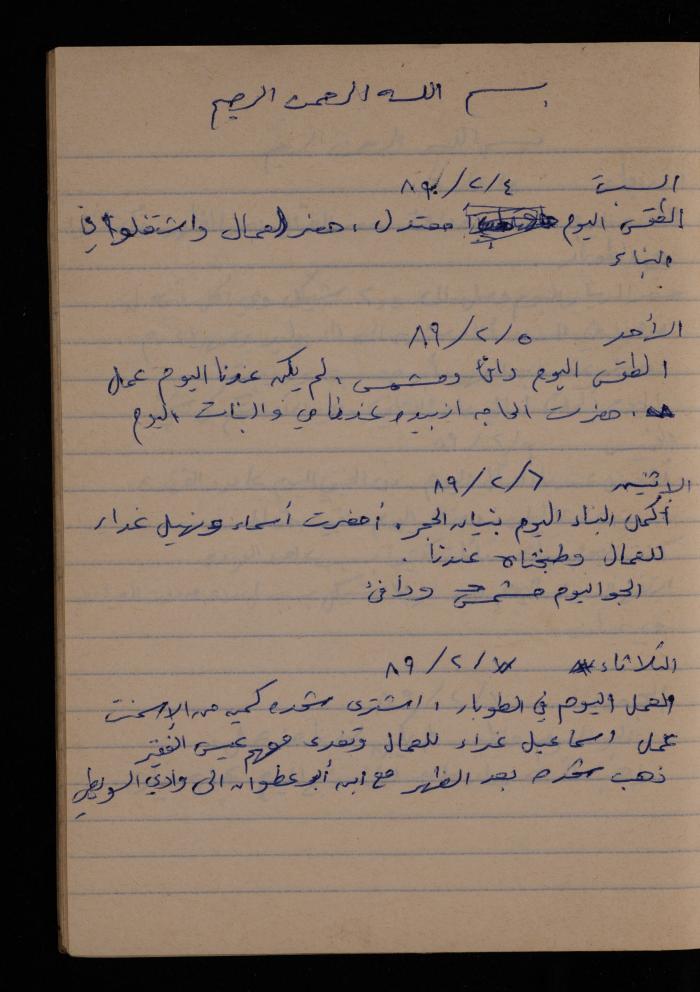 بسم الله الرحمن الرحيم
السبت ٨٩/٢/٤
الطقس اليوم معتدل ، حضر العمال واشتغلوا في
البناء
الأحد ٨٩/٢/٥
الطقس اليوم دافئ ومشمس ، لم يكن عندنا اليوم عمل
، حضرت الحاجه ازبيده عند امي والبنات اليوم
الاثنين ٨٩/٢/٦
أكمل البناء اليوم بنيان الحجر . أحضرت أسماء ونهيل غداء
للعمال وطبختاه عندنا .
الجو اليوم مشمس ودافئ
الثلاثاء ٨٩/٢/٧
العمل اليوم في الطوبار ، اشترى كميه من الإسمنت
عمل اسماعيل غداء للعمال وتغدى معهم عيسى الفقير
ذهب بعد الظهر مع ابن أبو عطوان الى وادي السويطي